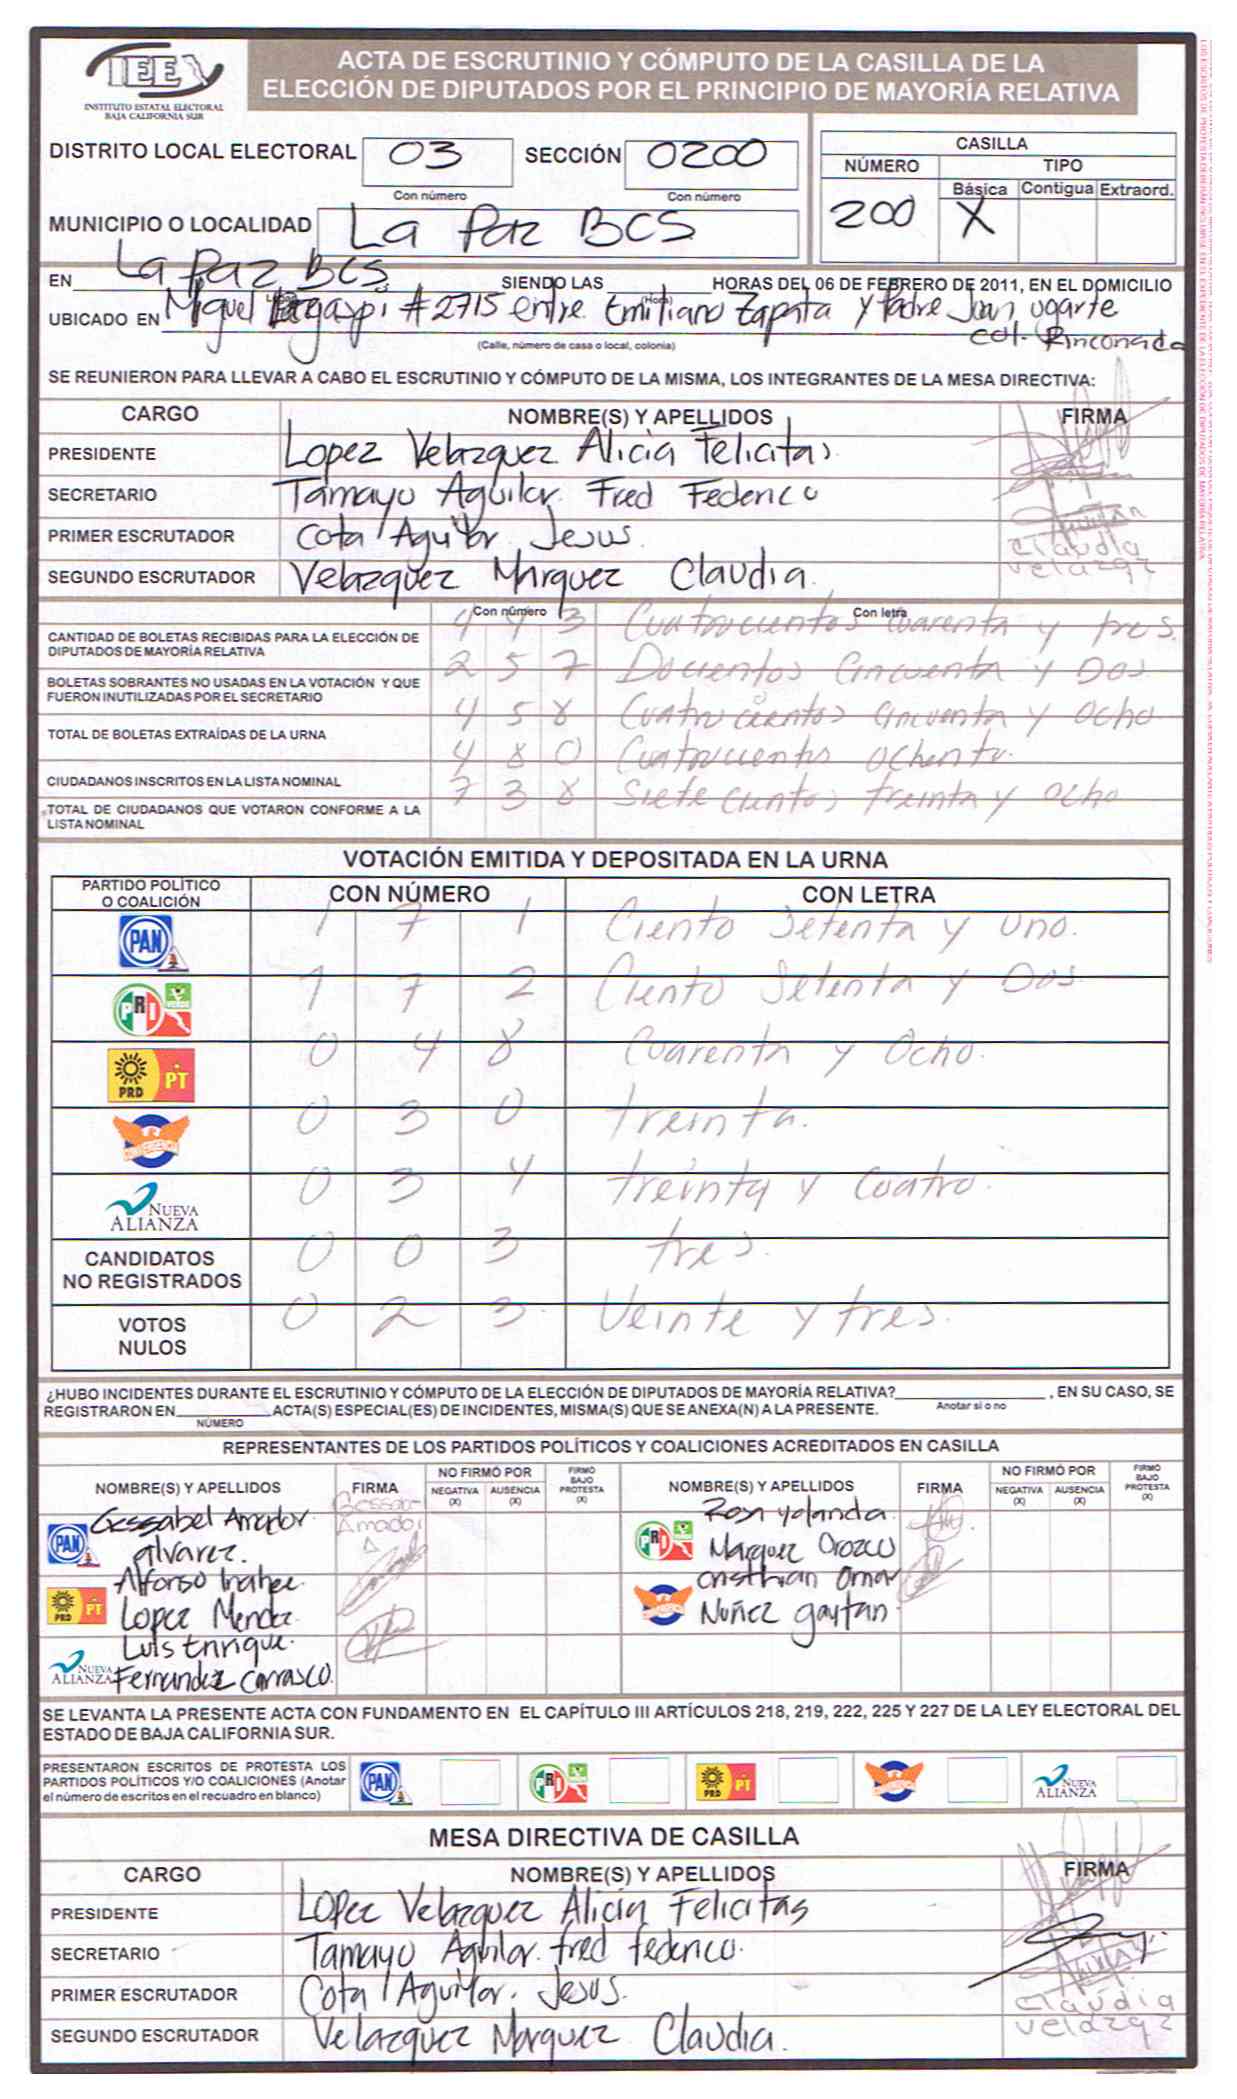 IEE
INSTITUTO ESTATAL ELECTORAL
BAJA CALIFORNIA SUR
ACTA DE ESCRUTINIO Y CÓMPUTO DE LA CASILLA DE LA
ELECCIÓN DE DIPUTADOS POR EL PRINCIPIO DE MAYORÍA RELATIVA
DISTRITO LOCAL ELECTORAL 03 SECCIÓN 0200
Con número Con número
MUNICIPIO O LOCALIDAD La Paz BCS
CASILLA
NÚMERO TIPO
Básica Contigua Extraord.
200 X
EN La Paz BCS SIENDO LAS HORAS DEL 06 DE FEBRERO DE 2011, EN EL DOMICILIO
(Hora)
UBICADO EN Miguel Legaspi #2715 entre Emiliano Zapata y Padre Juan ugarte
col. Rinconada
(Calle, número de casa o local, colonia)
SE REUNIERON PARA LLEVAR A CABO EL ESCRUTINIO Y CÓMPUTO DE LA MISMA, LOS INTEGRANTES DE LA MESA DIRECTIVA:
CARGO NOMBRE(S) Y APELLIDOS FIRMA
PRESIDENTE Lopez Velazquez Alicia Felicitas
SECRETARIO Tamayo Aguilar Fred Federico
PRIMER ESCRUTADOR Cota Aguilar Jesus
SEGUNDO ESCRUTADOR Velazquez Marquez Claudia. Claudia Velazqz
Con número Con letra
CANTIDAD DE BOLETAS RECIBIDAS PARA LA ELECCIÓN DE DIPUTADOS DE MAYORÍA RELATIVA 4 4 3 Cuatrocientos cuarenta y tres.
BOLETAS SOBRANTES NO USADAS EN LA VOTACIÓN Y QUE FUERON INUTILIZADAS POR EL SECRETARIO 2 5 7 Docientos Cincuenta y Dos
TOTAL DE BOLETAS EXTRAÍDAS DE LA URNA 4 5 8 Cuatrocientos cincuenta y ocho
CIUDADANOS INSCRITOS EN LA LISTA NOMINAL 4 8 0 Cuatrocientos ochenta.
TOTAL DE CIUDADANOS QUE VOTARON CONFORME A LA LISTA NOMINAL 7 3 8 Siete cientos treinta y ocho
VOTACIÓN EMITIDA Y DEPOSITADA EN LA URNA
PARTIDO POLÍTICO O COALICIÓN CON NÚMERO CON LETRA
PAN 1 7 1 Ciento Setenta y uno.
PRI VERDE 1 7 2 Ciento Setenta y Dos
PRD PT 0 4 8 Cuarenta y Ocho.
CONVERGENCIA 0 3 0 treinta.
NUEVA ALIANZA 0 3 4 treinta y Cuatro.
CANDIDATOS NO REGISTRADOS 0 0 3 tres.
VOTOS NULOS 0 2 3 Veinte y tres.
¿HUBO INCIDENTES DURANTE EL ESCRUTINIO Y CÓMPUTO DE LA ELECCIÓN DE DIPUTADOS DE MAYORÍA RELATIVA? , EN SU CASO, SE
Anotar si o no
REGISTRARON EN ACTA(S) ESPECIAL(ES) DE INCIDENTES, MISMA(S) QUE SE ANEXA(N) A LA PRESENTE.
NÚMERO
REPRESENTANTES DE LOS PARTIDOS POLÍTICOS Y COALICIONES ACREDITADOS EN CASILLA
NOMBRE(S) Y APELLIDOS FIRMA NO FIRMÓ POR NEGATIVA (X) AUSENCIA (X) FIRMÓ BAJO PROTESTA (X)
NOMBRE(S) Y APELLIDOS FIRMA NO FIRMÓ POR NEGATIVA (X) AUSENCIA (X) FIRMÓ BAJO PROTESTA (X)
PAN Gessabel Amador alvarez. Amador A
PRI Yolanda Marquez Orozco
PRD PT Alfonso Lopez Mendez
CONVERGENCIA Omar Nuñez gaytan
NUEVA ALIANZA Luis Enrique Fernandez Carrasco.
SE LEVANTA LA PRESENTE ACTA CON FUNDAMENTO EN EL CAPÍTULO III ARTÍCULOS 218, 219, 222, 225 Y 227 DE LA LEY ELECTORAL DEL
ESTADO DE BAJA CALIFORNIA SUR.
PRESENTARON ESCRITOS DE PROTESTA LOS
PARTIDOS POLÍTICOS Y/O COALICIONES (Anotar
el número de escritos en el recuadro en blanco)
PAN PRI PRD PT CONVERGENCIA NUEVA ALIANZA
MESA DIRECTIVA DE CASILLA
CARGO NOMBRE(S) Y APELLIDOS FIRMA
PRESIDENTE Lopez Velazquez Alicia Felicitas
SECRETARIO Tamayo Aguilar fred federico.
PRIMER ESCRUTADOR Cota Aguilar. Jesus.
SEGUNDO ESCRUTADOR Velazquez Marquez Claudia. Claudia Velazqz